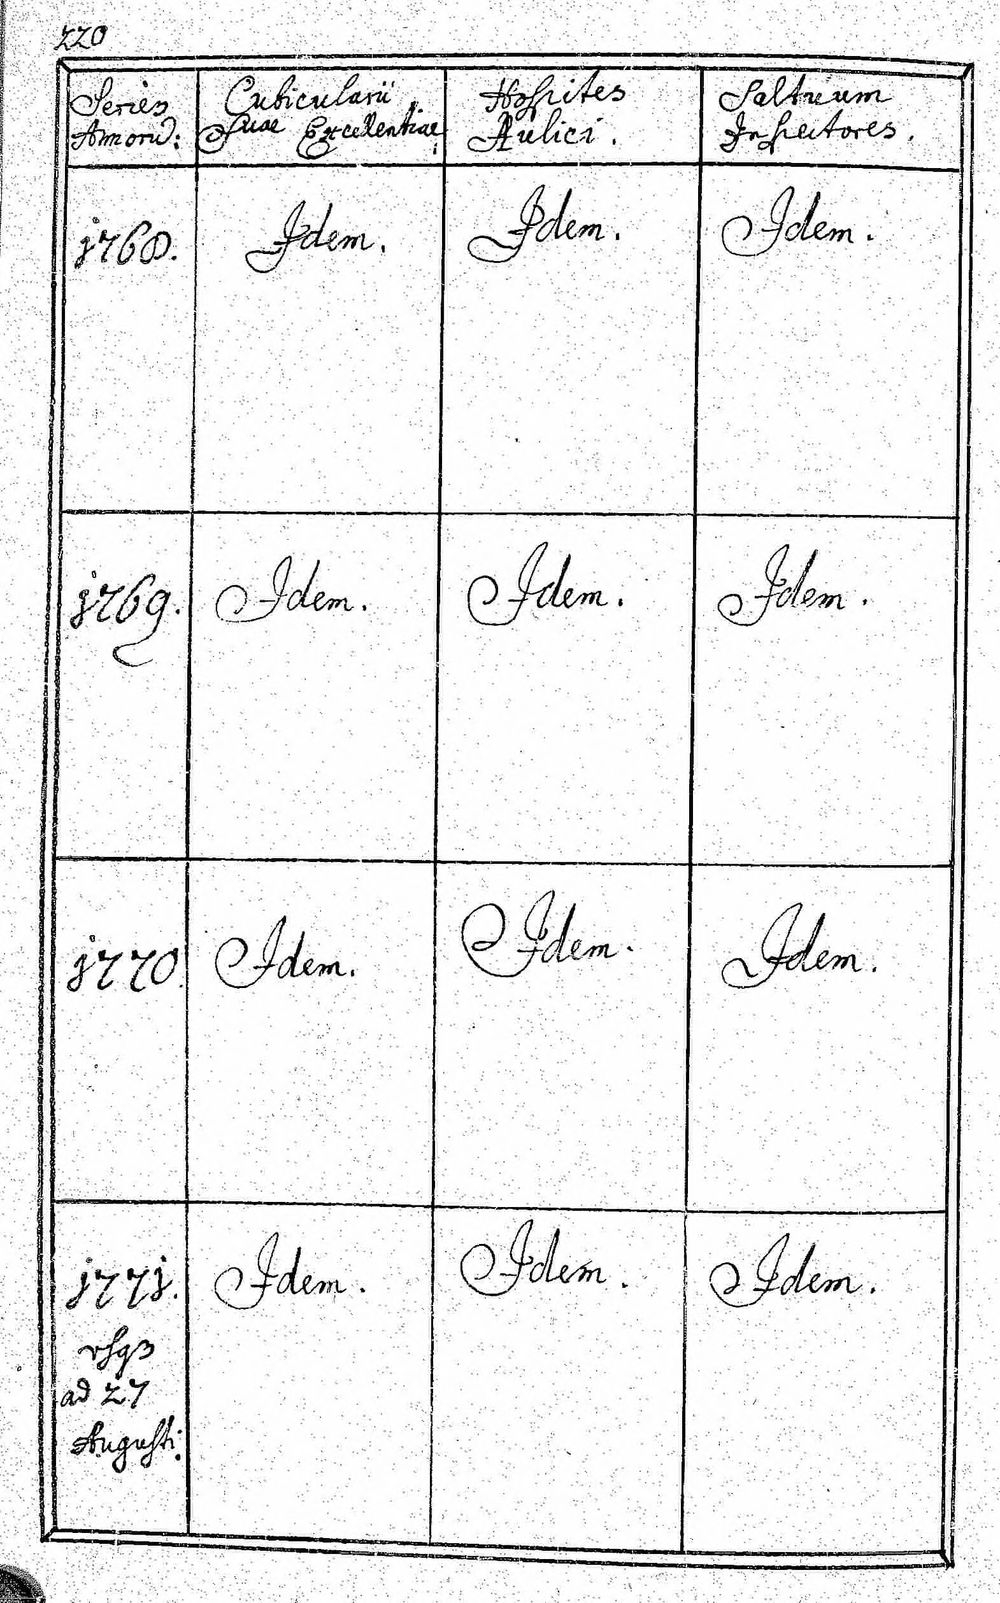 220
Series Annorū:
Cubicularii Suae Excellentiae:
Hospites Aulici.
Saltuum Inspectores.
1768. Idem. Idem. Idem.
1769. Idem. Idem. Idem.
1770. Idem. Idem. Idem.
1771. Idem. Idem. Idem.
usqз
ad 27
Augusti.